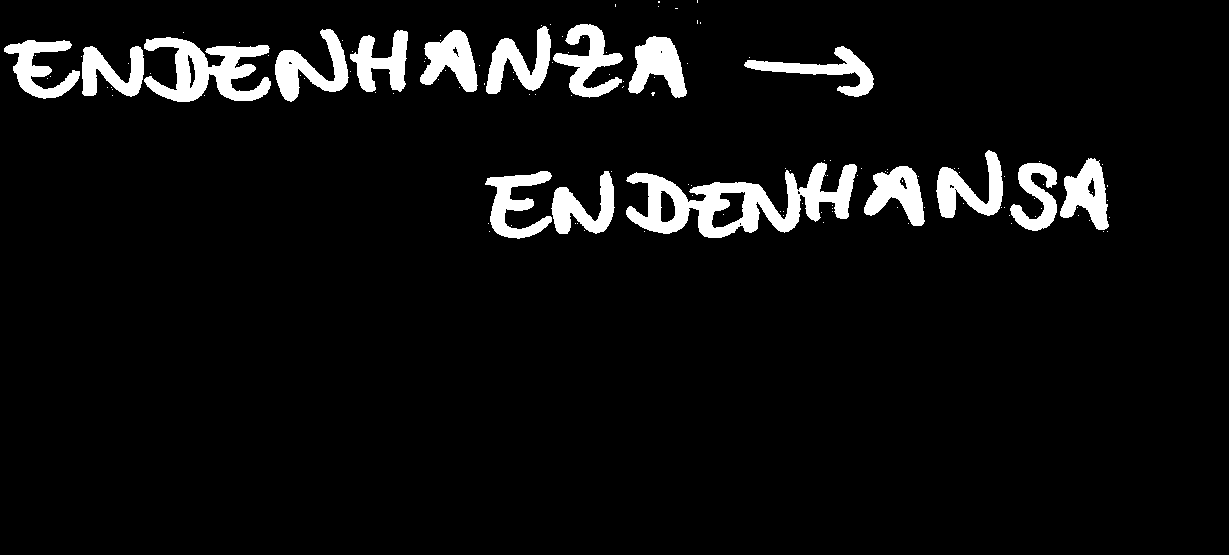 ENDENHANZA →
ENDENHANSA